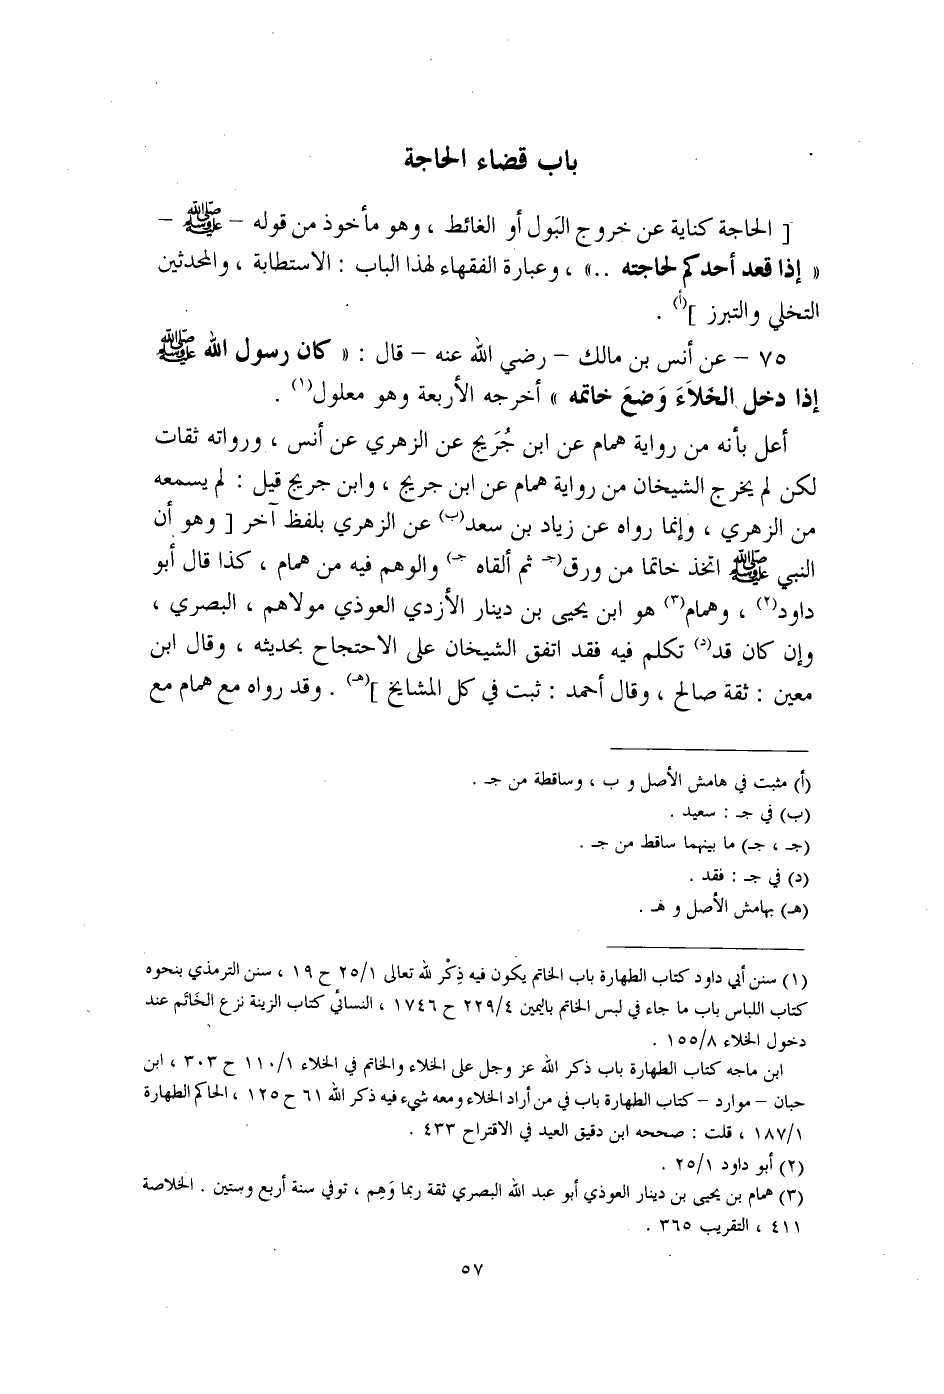 باب قضاء الحاجة
[ الحاجة كناية عن خروج البَول أو الغائط ، وهو مأخوذ من قوله – ﷺ –
« إذا قعد أحدكم لحاجته .. » ، وعبارة الفقهاء لهذا الباب : الاستطابة ، والمحدثين
التخلي والتبرز ](أ) .
٧٥ – عن أنس بن مالك – رضي الله عنه – قال : « كان رسول الله ﷺ
إذا دخل الخَلاَءَ وَضعَ خاتمه » أخرجه الأربعة وهو معلول(١) .
أعل بأنه من رواية همام عن ابن جُرَيج عن الزهري عن أنس ، ورواته ثقات
لكن لم يخرج الشيخان من رواية همام عن ابن جريج ، وابن جريج قيل : لم يسمعه
من الزهري ، وإنما رواه عن زياد بن سعد(ب) عن الزهري بلفظ آخر [ وهو أن
النبي ﷺ اتخذ خاتما من ورق(جـ ثم ألقاه جـ) والوهم فيه من همام ، كذا قال أبو
داود(٢) ، وهمام(٣) هو ابن يحيى بن دينار الأزدي العوذي مولاهم ، البصري ،
وإن كان قد(د) تكلم فيه فقد اتفق الشيخان على الاحتجاج بحديثه ، وقال ابن
معين : ثقة صالح ، وقال أحمد : ثبت في كل المشايخ ](هـ) . وقد رواه مع همام مع
(أ) مثبت في هامش الأصل و ب ، وساقطة من جـ .
(ب) في جـ : سعيد .
(جـ ، جـ) ما بينهما ساقط من جـ .
(د) في جـ : فقد .
(هـ) بهامش الأصل و هـ .
(١) سنن أبي داود كتاب الطهارة باب الخاتم يكون فيه ذِكْر لله تعالى ٢٥/١ ح ١٩ ، سنن الترمذي بنحوه
كتاب اللباس باب ما جاء في لبس الخاتم باليمين ٢٢٩/٤ ح ١٧٤٦ ، النسائي كتاب الزينة نزع الخَاتَم عند
دخول الخلاء ١٥٥/٨ .
ابن ماجه كتاب الطهارة باب ذكر الله عز وجل على الخلاء والخاتم في الخلاء ١١٠/١ ح ٣٠٣ ، ابن
حبان – موارد – كتاب الطهارة باب في من أراد الخلاء ومعه شيء فيه ذكر الله ٦١ ح ١٢٥ ، الحاكم الطهارة
١٨٧/١ ، قلت : صححه ابن دقيق العيد في الاقتراح ٤٣٣ .
(٢) أبو داود ٢٥/١ .
(٣) همام بن يحيى بن دينار العوذي أبو عبد الله البصري ثقة ربما وَهِم ، توفي سنة أربع وستين . الخلاصة
٤١١ ، التقريب ٣٦٥ .
٥٧